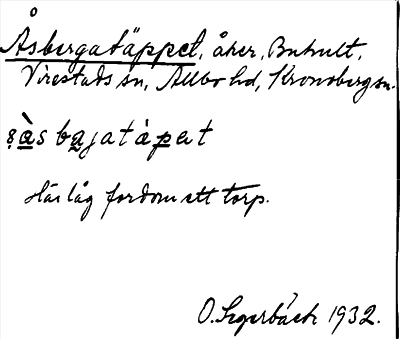 Åsbergatäppet, åker, Buhult,
Virestads sn, Allbo hd, Kronobergs ln.
åsbajatäpat
Här låg fordom ett torp.
O. Segerbäck 1932.